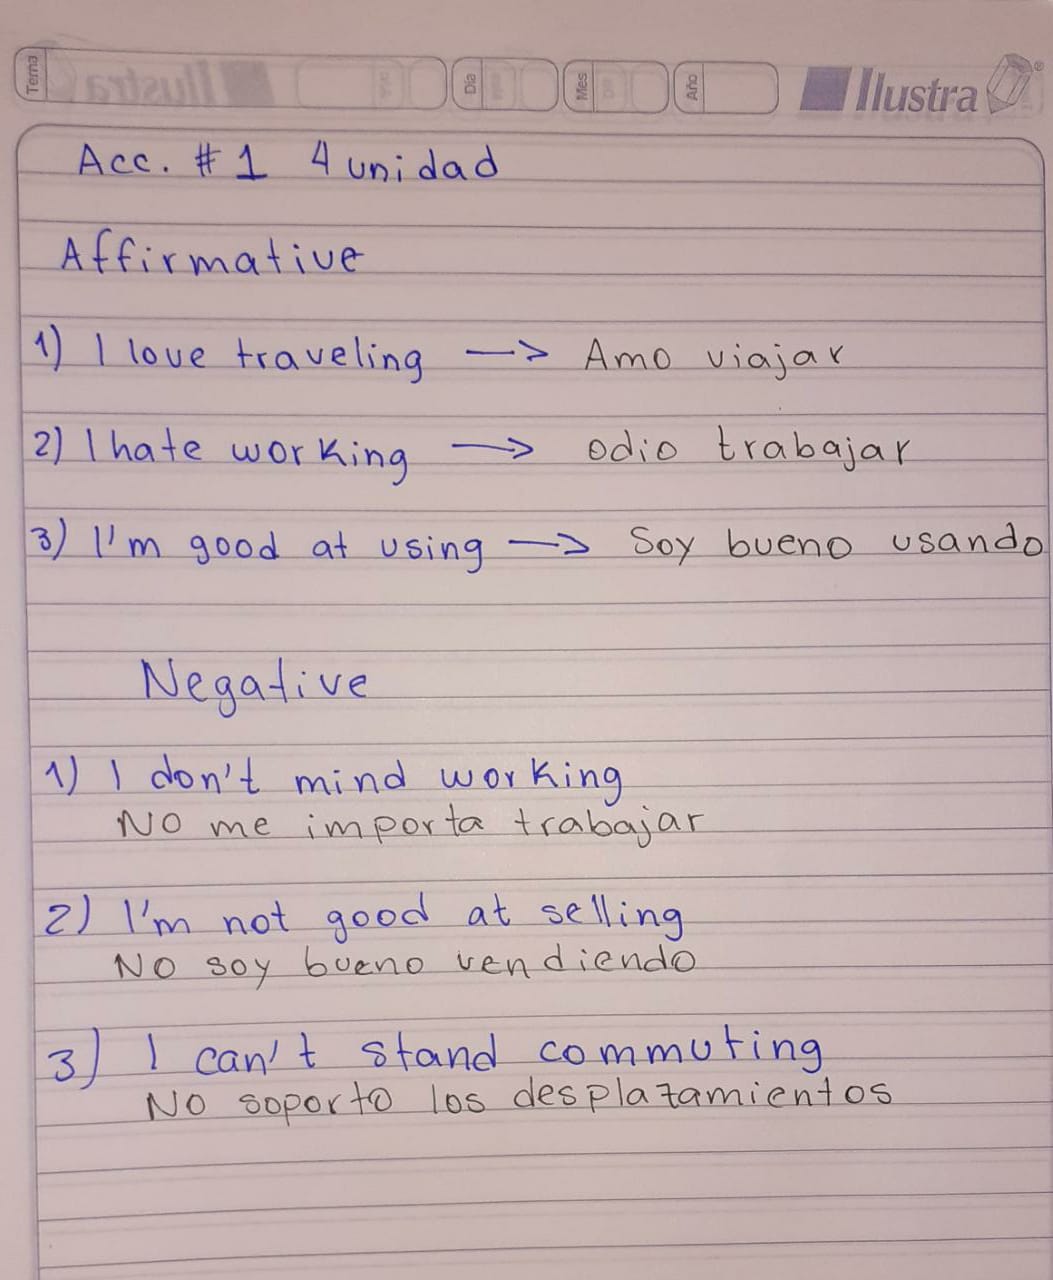 Tema
Día
Mes
Año
Ilustra®
Acc. #1 4 unidad
Affirmative
1) I love traveling —> Amo viajar
2) I hate working —> odio trabajar
3) I'm good at using —> Soy bueno usando
Negative
1) I don't mind working
No me importa trabajar
2) I'm not good at selling
No soy bueno vendiendo
3) I can't stand commuting
No soporto los desplazamientos